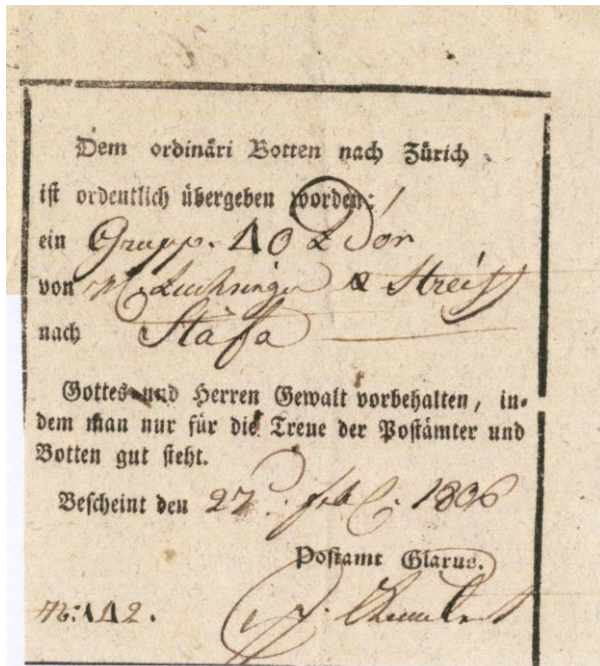 Dem ordinäri Botten nach Zürich
ist ordentlich übergeben worden:
ein Grupp. 10 L Dor
von M. Luchsinger & Streiff
nach Stäfa
Gottes und Herren Gewalt vorbehalten, in-
dem man nur für die Treue der Postämter und
Botten gut steht.
Bescheint den 27. feb. 1806
Postamt Glarus.
No: 112.